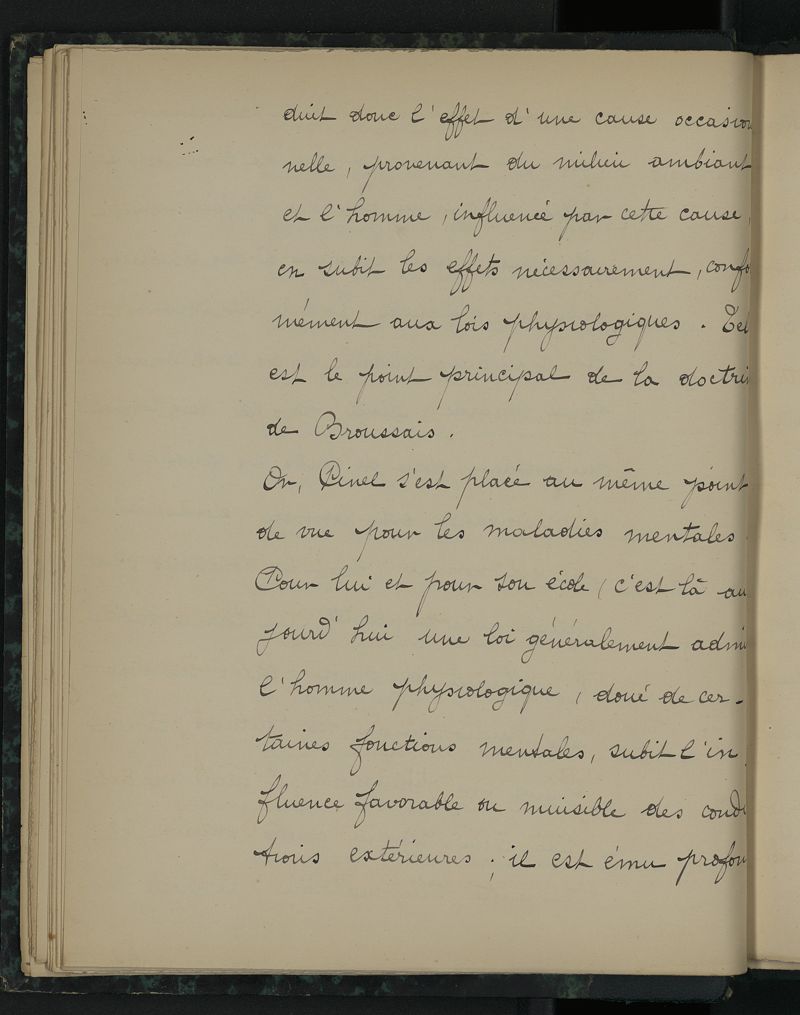 duit donc l'effet d'une cause occasion
nelle, provenant du milieu ambiant
et l'homme, influencé par cette cause,
en subit les effets nécessairement, confo
mément aux lois physiologiques. Tel
est le point principal de la doctrin
de Broussais.
Or, Pinel s'est placé au même point
de vue pour les maladies mentales.
Pour lui et pour son école (c'est là au
jourd'hui une loi généralement admi
l'homme physiologique, doué de cer-
taines fonctions mentales, subit l'in
fluence favorable ou nuisible des condi
tions extérieures ; il est ému profon